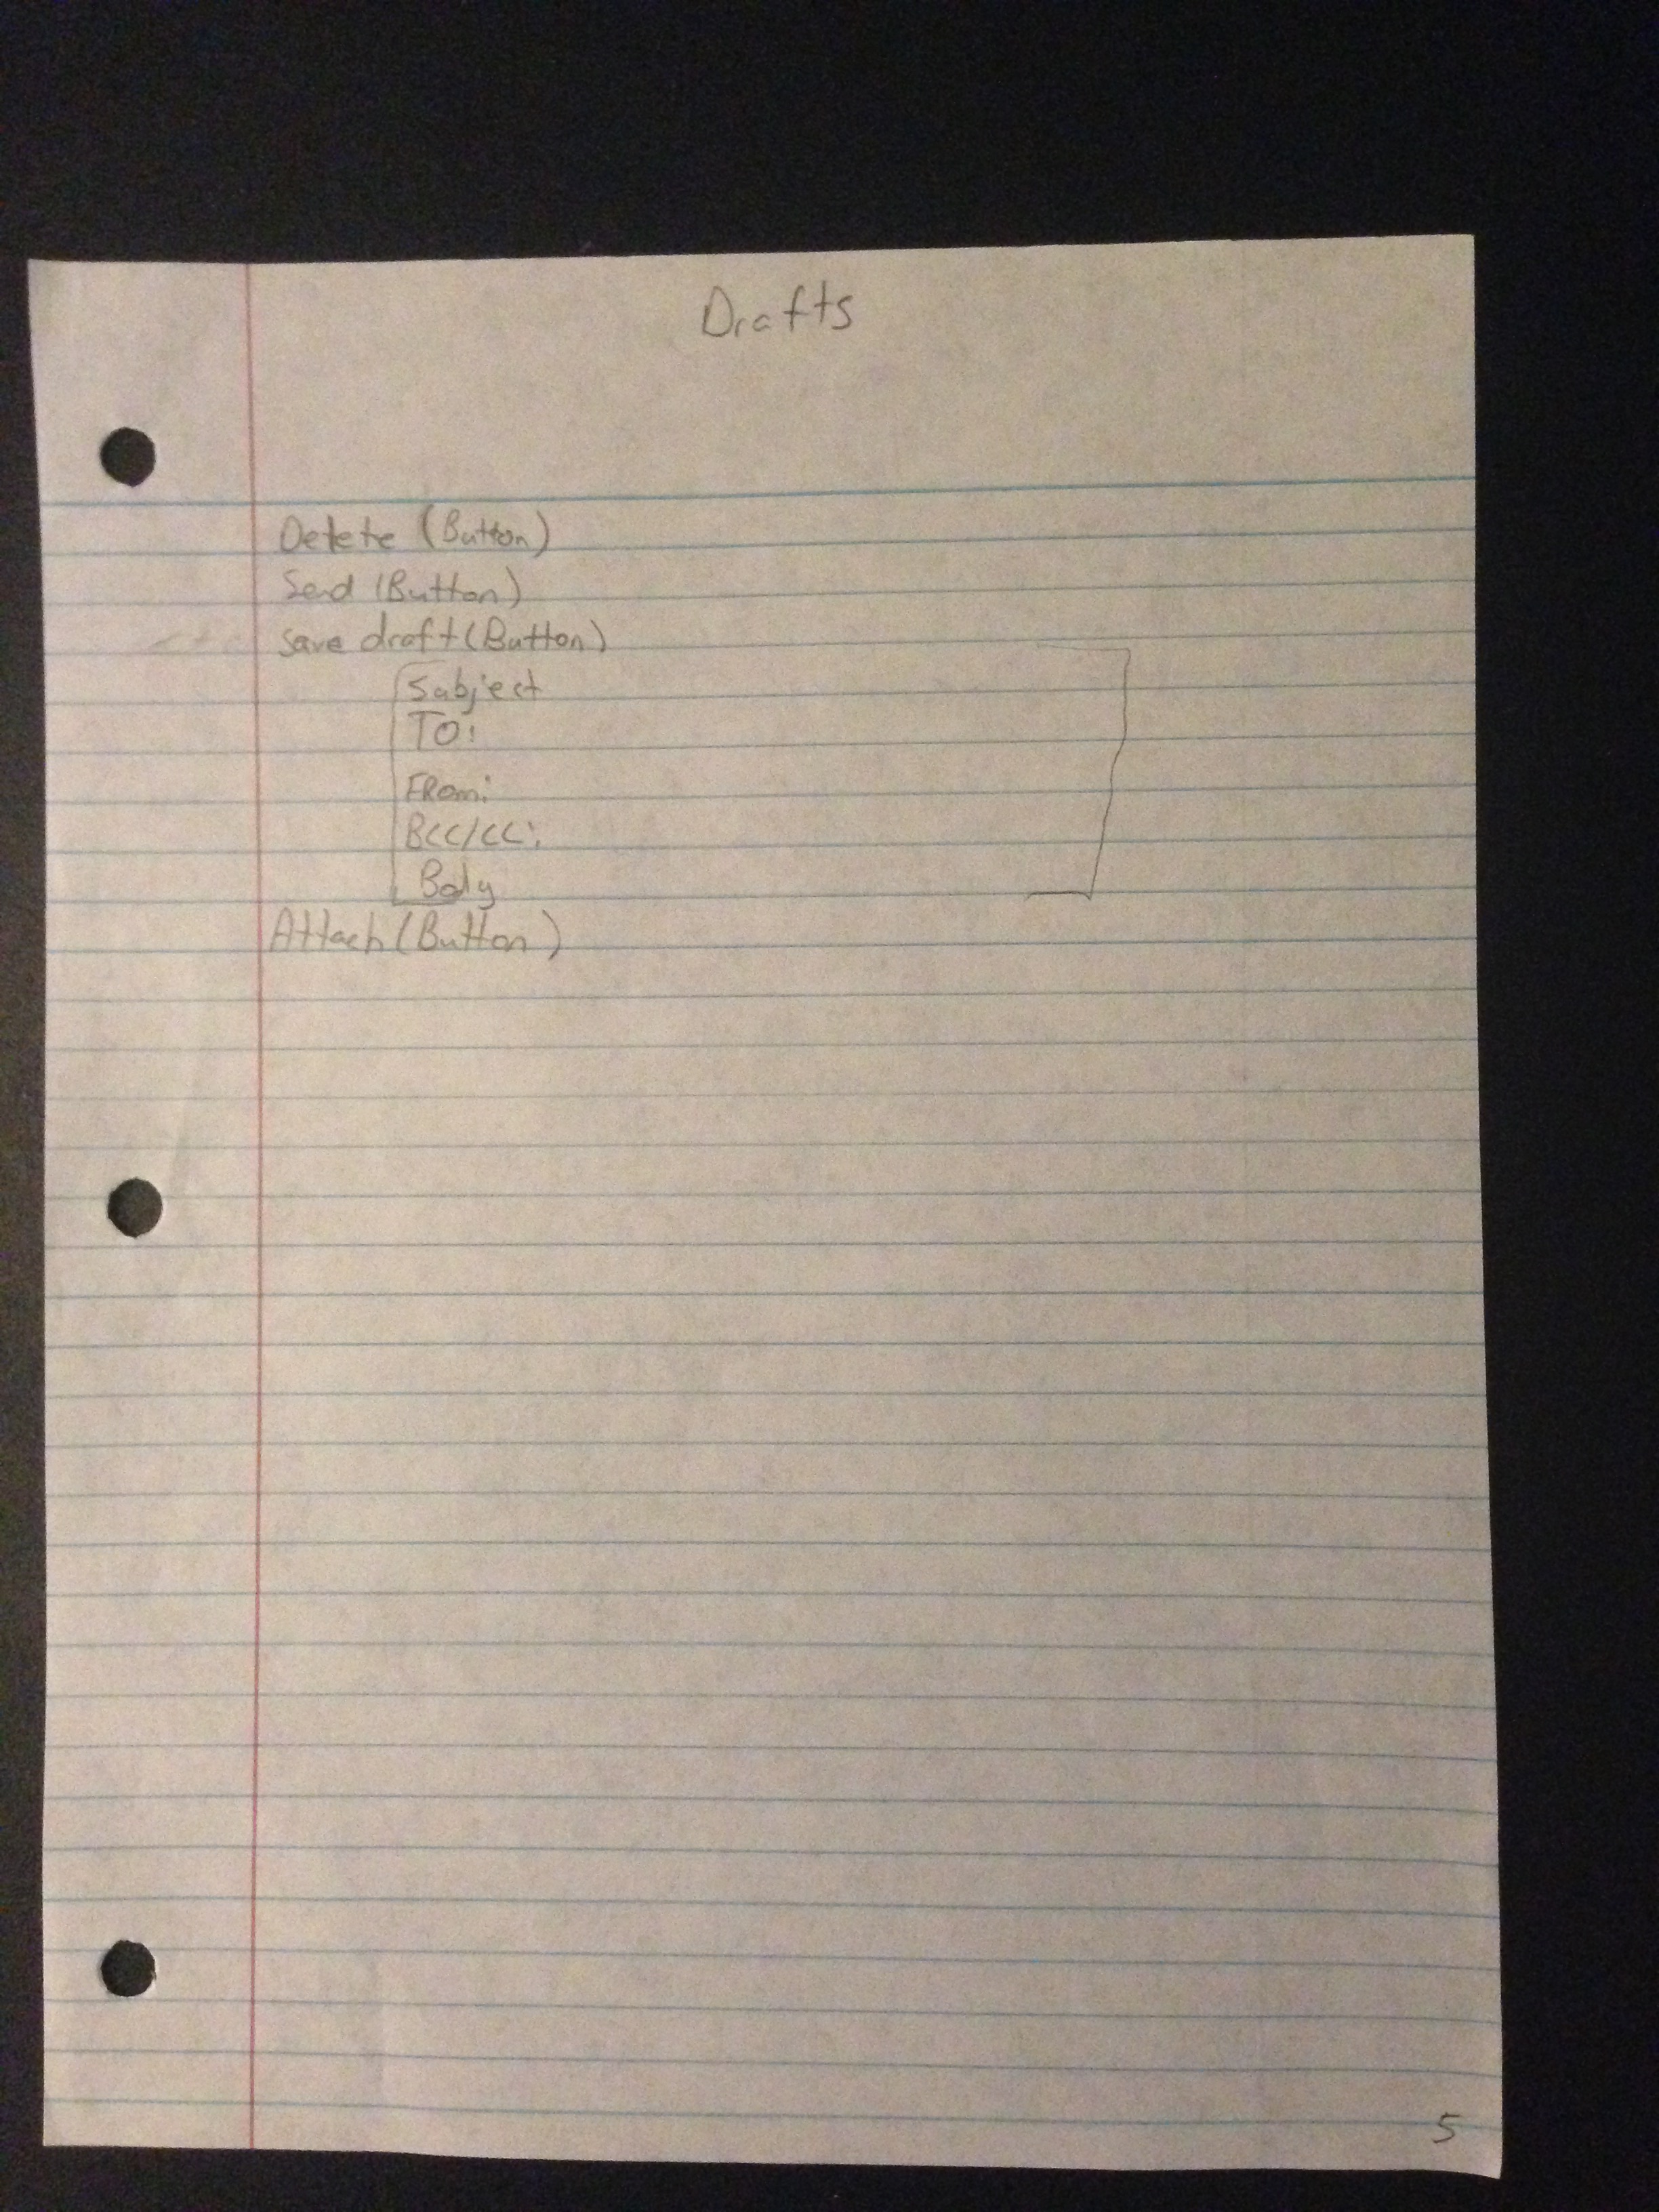 Drafts
Delete (Button)
Send (Button)
Save draft (Button)
Subject
TO:
FRom:
BCC/CC:
Body
Attach (Button)
5